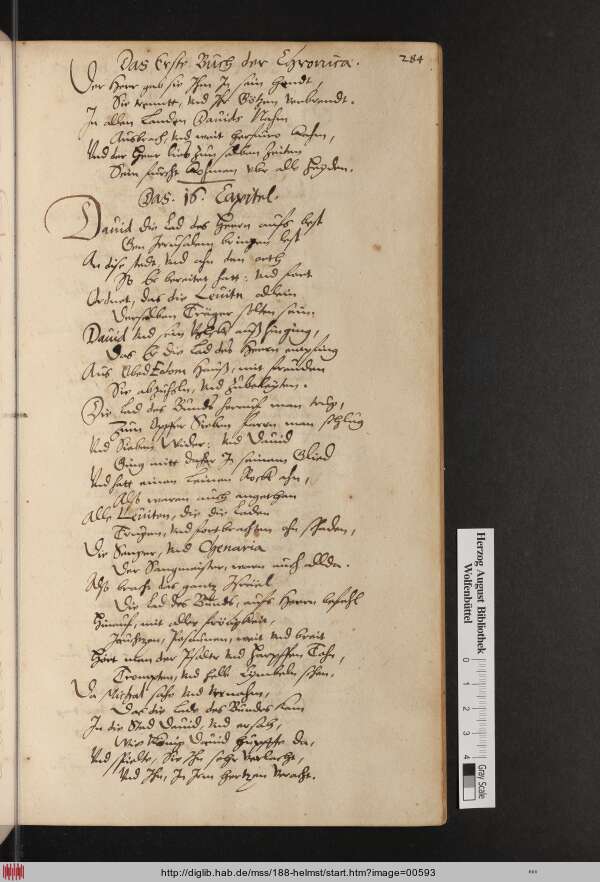 Das Erste Buch der Chronica.
284
Der Herr gab sie Ihm In sein Hendt,
Sie trennt, und Ihr Götzen verbrendt.
In allen Landen Dauids Nahm
Ausbrach, und weit herfüro kahm,
Und der Herr lies zur selben Zeiten
Sein furcht kohmen uber alle Heyden.
Das. 16. Capitel.
Dauid die Lad des Herrn aufs best
Gen Jerusalem bringen lest
An dise stadt, und ahn den orth
So Er bereitet hatt: und fort
Ordnet, das die Leuitn allein
Derselben Träger solten sein.
Dauid und sein Volck auß hinging,
Das Er die Lad des Herrn empfing
Aus Obed Edom Hauß, mit freuden
Sie abzuholn, und zubeleyten.
Die Lad des Bunds herauf man trug,
Zum Opffer Sieben farrn man schlug
Und Sieben Wider: und Dauid
Ging mitt daher In seinem Glied
Und hatt einen leinen Rock ahn,
Also waren auch angethan
Alle Leuiten, die die Laden
Trugen, und fortbrachten ohn schaden,
Die Senger, und Chenania
Der Sangmeister, warn auch allda.
Also bracht das gantz Israel
Die Lad des Bunds, aufs Herrn befehl
Hinauf, mit aller frölichkeit,
Jauchtzen, Posaunen, weit und breit
Hört man der Psalter und Harpffen Tohn,
Trompten, und helle Cymbeln schon.
Da Michal sahe und vernahm,
Das die Lade des Bundes kam
In die Stad Dauid, und ersah,
Wie König Dauid hüpffte da,
Und spielte, Sie Ihn sehr verlacht,
Und Ihn, In Irm Hertzen veracht.
Herzog August Bibliothek
Wolfenbüttel
0 1 2 3 4
Gray Scale
http://diglib.hab.de/mss/188-helmst/start.htm?image=00593